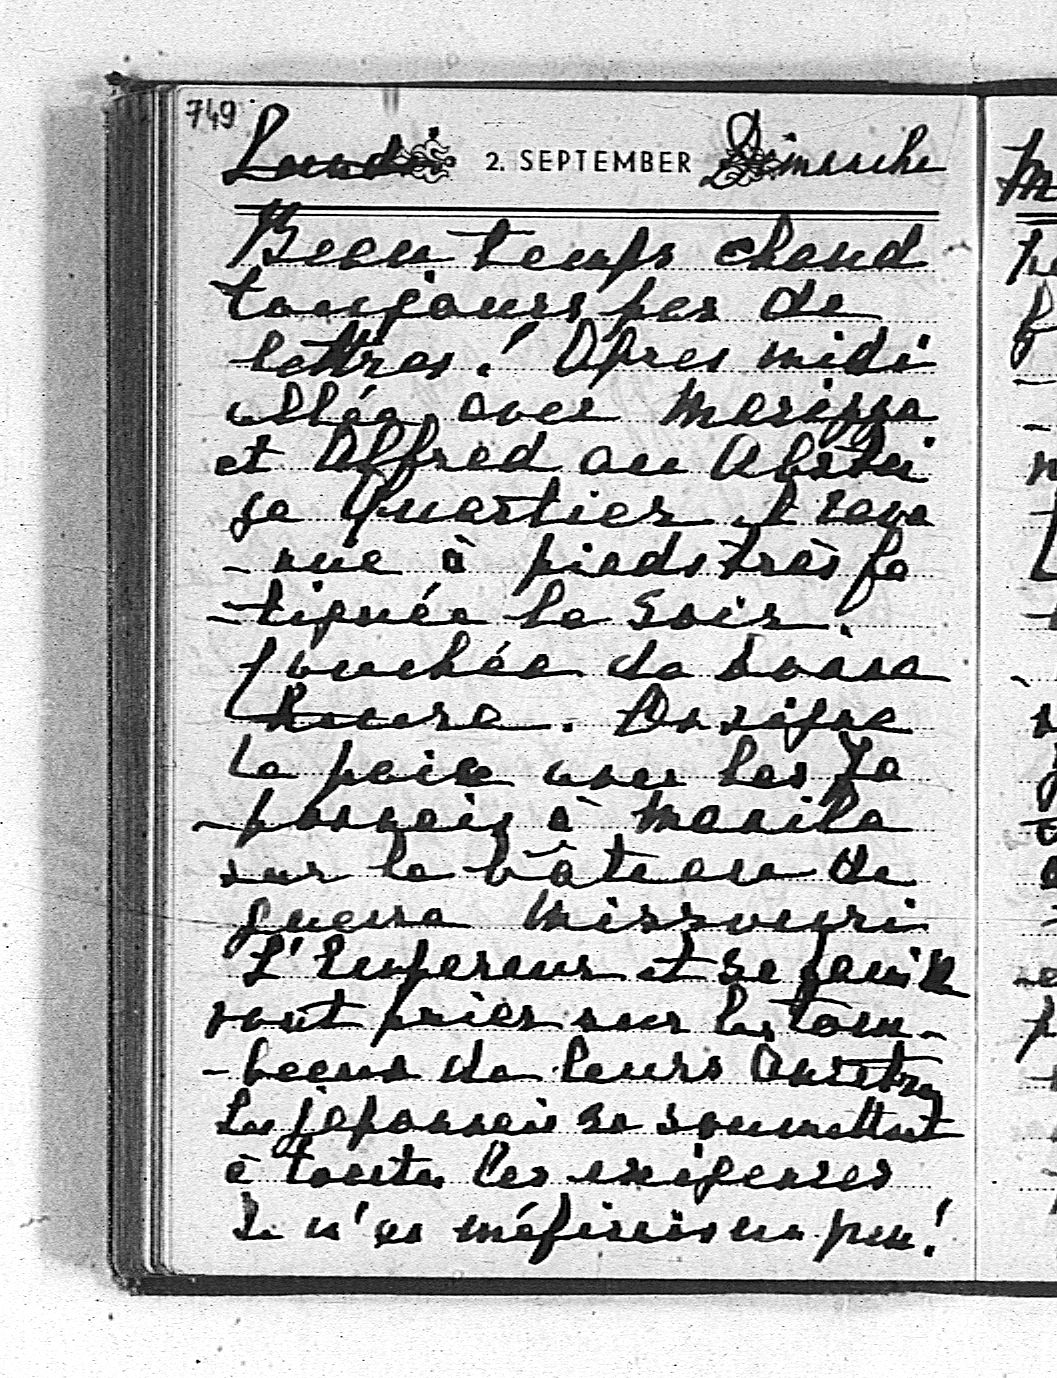 749
Lundi 2. SEPTEMBER Dimanche
Beau temps chaud
toujours pas de
lettres! Après midi
allée avec Marizza
et Alfred au
ga Quartier. t reve
-nue à pieds très fa
-tiguée le soir.
Couchée de bonne
heure. On signe
la paix avec les Ja
-ponnais à Manila
sur le bâteau de
guerre Missouri
L'Empereur et sa famille
vont prier sur les tom-
-beaux de leurs Ancêtres
Les japonnais se soumettent
à toutes les exigences
Je m'en méfierais un peu!